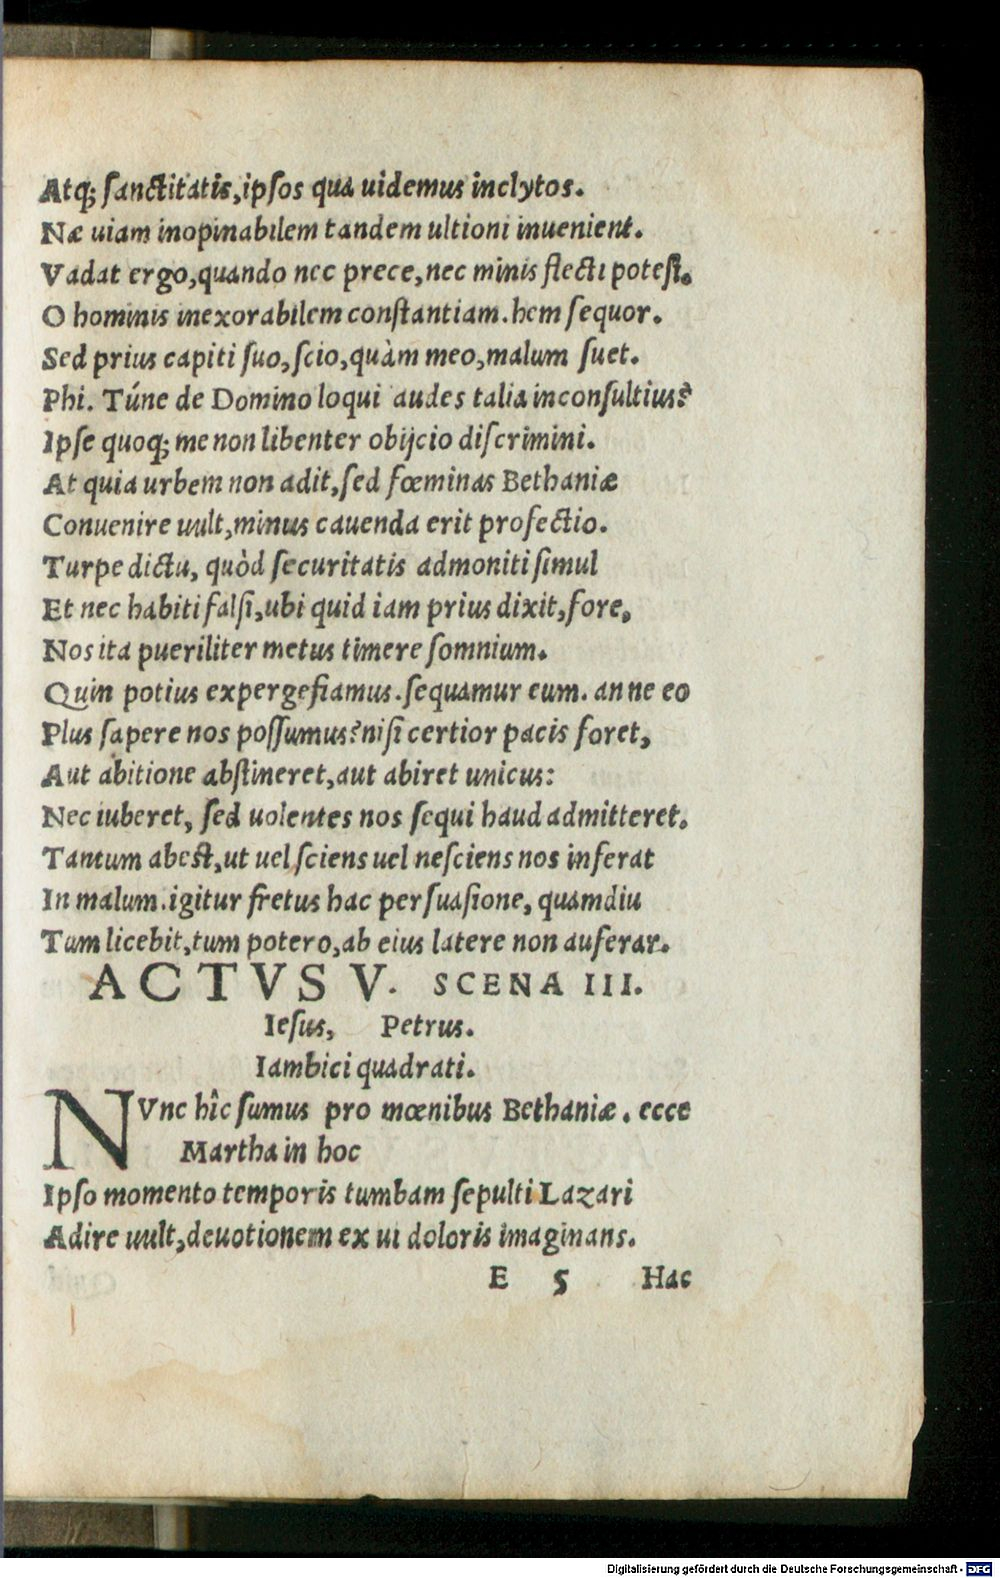 Atq; sanctitatis,ipsos qua uidemus inclytos.
Næ uiam inopinabilem tandem ultioni inuenient.
Vadat ergo,quando nec prece,nec minis flecti potest.
O hominis inexorabilem constantiam.hem sequor.
Sed prius capiti suo,scio,quàm meo,malum suet.
Phi. Túne de Domino loqui audes talia inconsultius?
Ipse quoq; me non libenter obijcio discrimini.
At quia urbem non adit,sed fœminas Bethaniæ
Conuenire uult,minus cauenda erit profectio.
Turpe dictu, quòd securitatis admoniti simul
Et nec habiti falsi,ubi quid iam prius dixit,fore,
Nos ita pueriliter metus timere somnium.
Quin potius expergefiamus.sequamur eum. an ne eo
Plus sapere nos possumus?nisi certior pacis foret,
Aut abitione abstineret,aut abiret unicus:
Nec iuberet, sed uolentes nos sequi haud admitteret.
Tantum abest,ut uel sciens uel nesciens nos inferat
In malum.igitur fretus hac persuasione, quamdiu
Tum licebit,tum potero,ab eius latere non auferar.
ACTVS V. SCENA III.
Iesus, Petrus.
Iambici quadrati.
NVnc hîc sumus pro mœnibus Bethaniæ. ecce
Martha in hoc
Ipso momento temporis tumbam sepulti Lazari
Adire uult,deuotionem ex ui doloris imaginans.
E 5 Hac
Digitalisierung gefördert durch die Deutsche Forschungsgemeinschaft - DFG